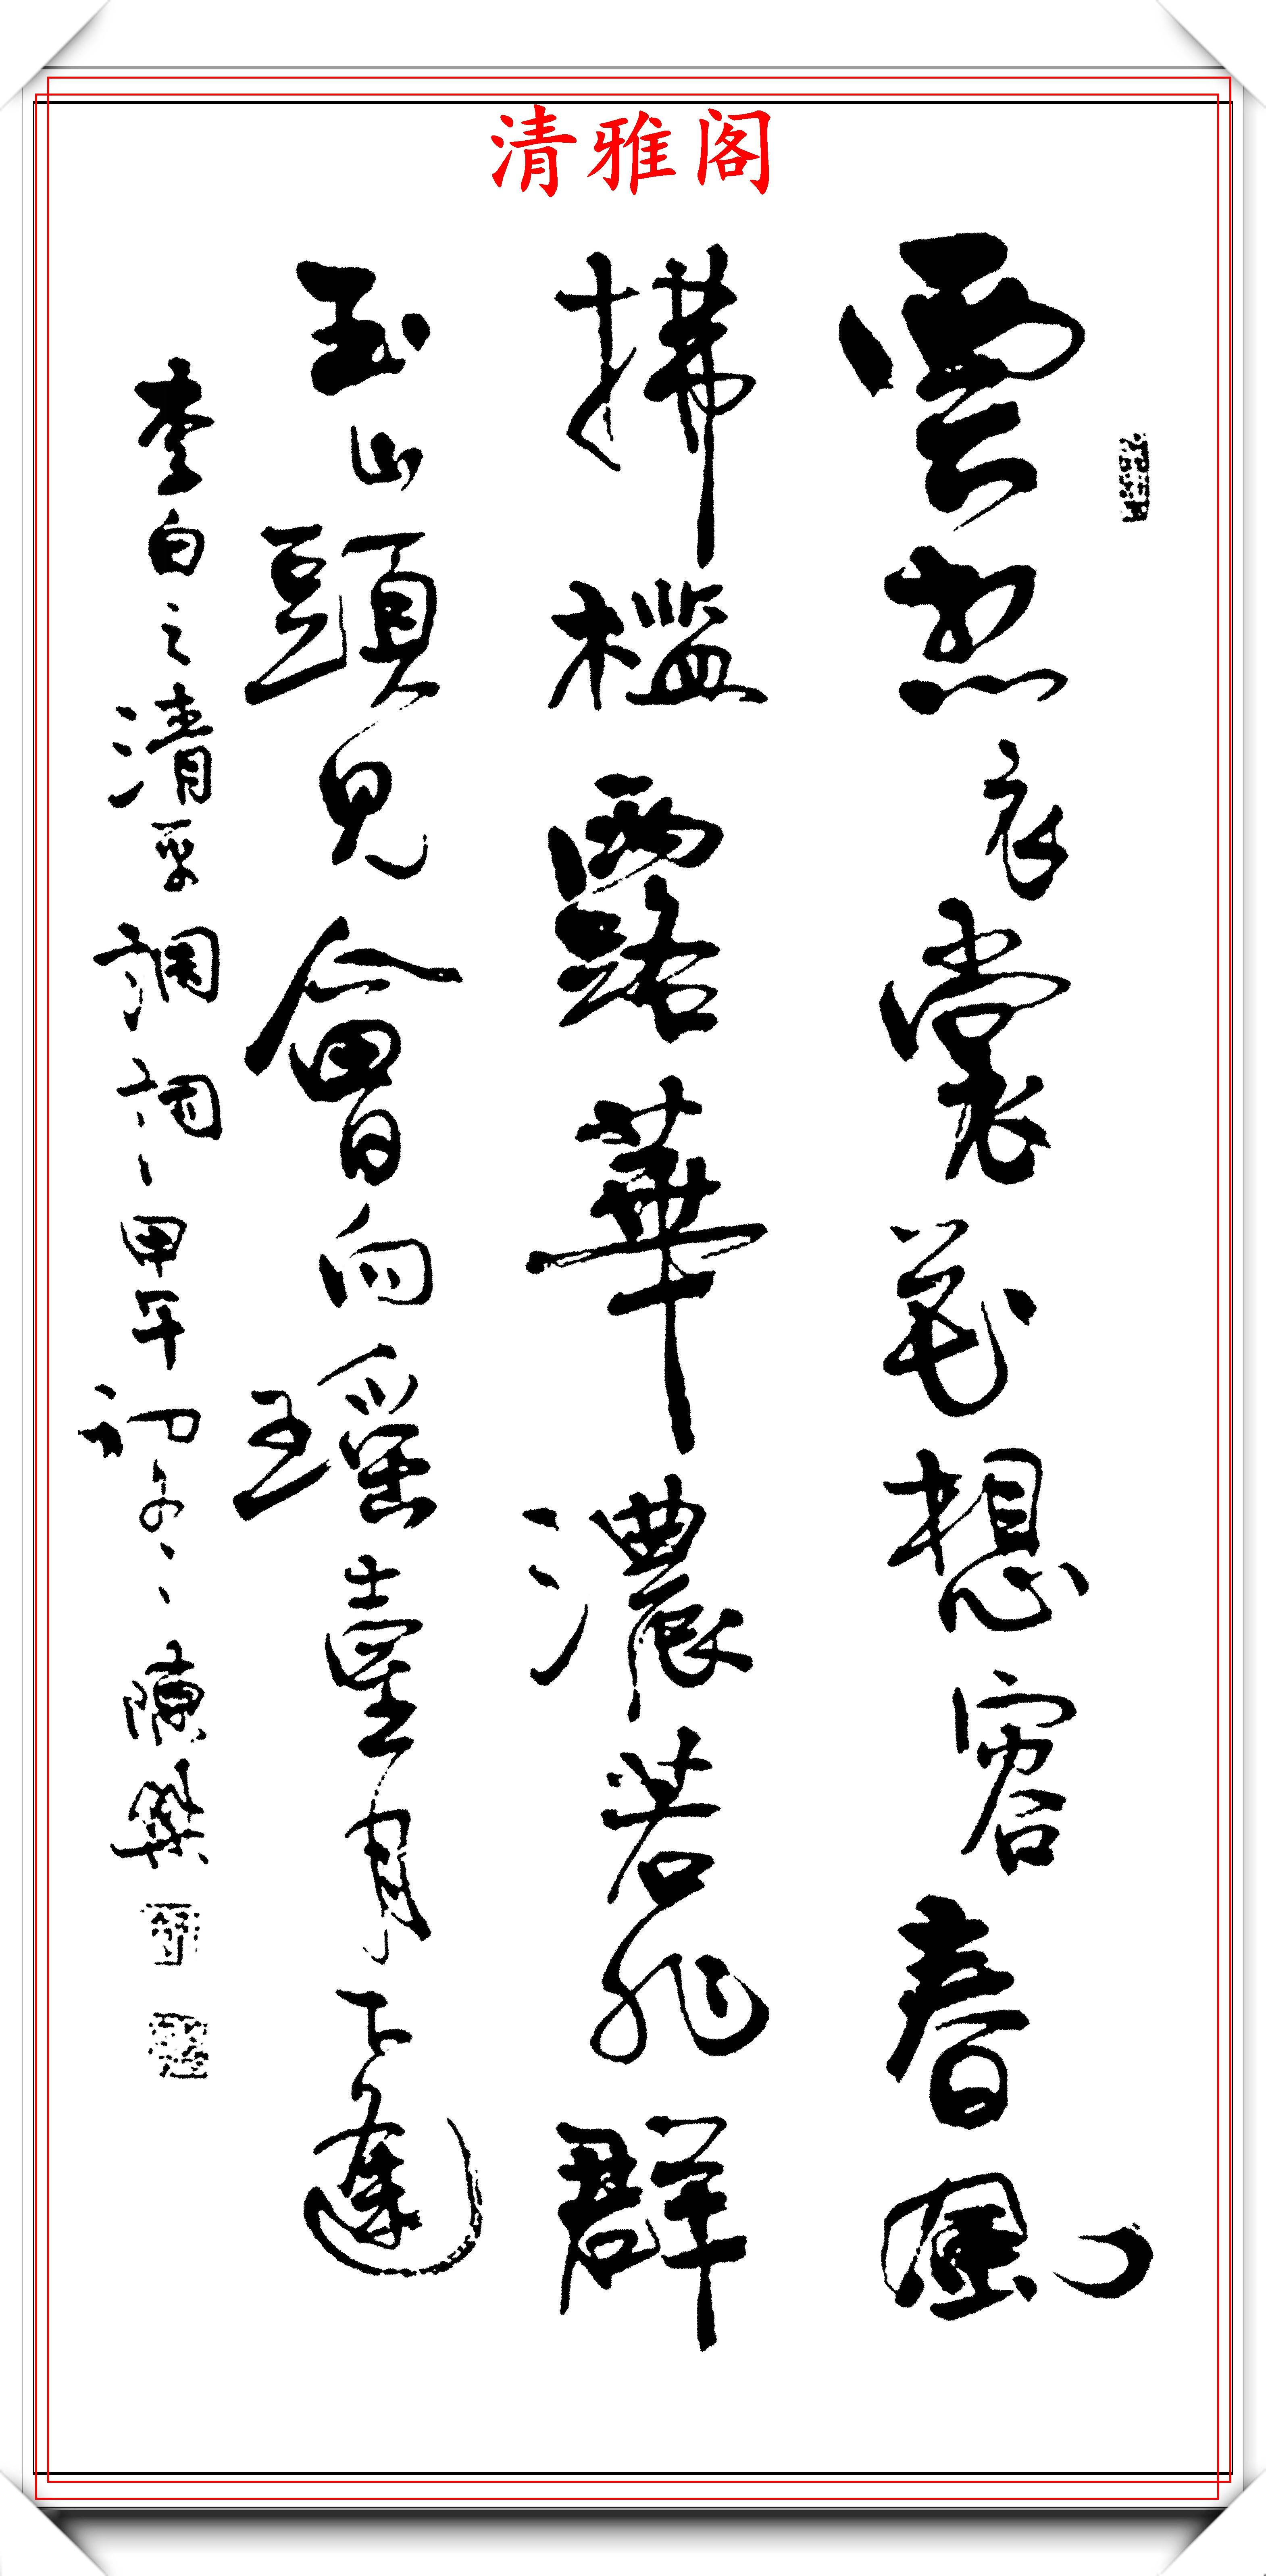 清雅阁
雲想衣裳花想容春風
拂槛露華濃若非群
玉山頭見會向瑶臺月下逢
李白之清平調詞、甲午初冬陳